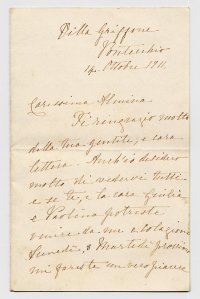 Villa Griffone
Pontecchio
14 Ottobre 1911.
Carissima Almina
Ti ringrazio molto
della tua gentile, e cara
lettera. Anch'io desidero
molto di vedervi tutti
e se te, e la cara Giulia,
e Paolina potreste
venire da me a colazione
Lunedì, o Martedì prossimo
mi fareste un vero piacere